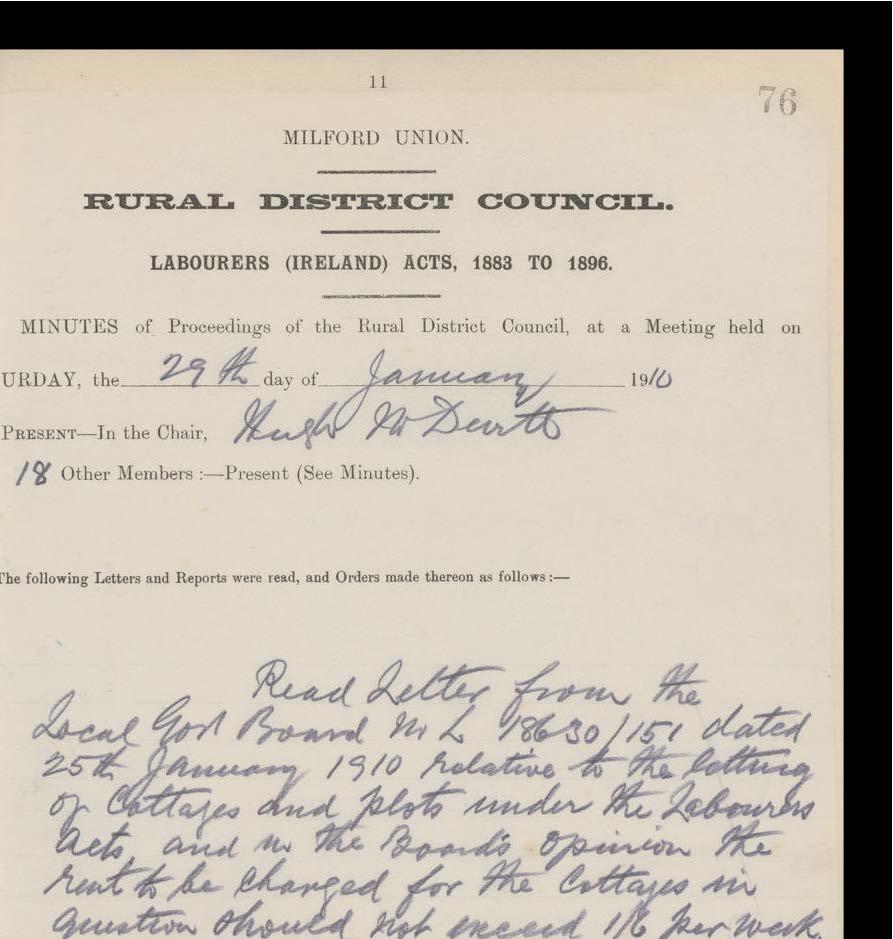 11
76
MILFORD UNION.
RURAL DISTRICT COUNCIL.
LABOURERS (IRELAND) ACTS, 1883 TO 1896.
MINUTES of Proceedings of the Rural District Council, at a Meeting held on
URDAY, the 29th day of January 1910
PRESENT—In the Chair, Hugh McDevitt
18 Other Members :—Present (See Minutes).
The following Letters and Reports were read, and Orders made thereon as follows :—
Read Letter from the
Local Govt Board No L 18630/151 dated
25th January 1910 relative to the letting
of Cottages and plots under the Labourers
Acts, and in the Board's opinion the
rent to be charged for the Cottages in
question should not exceed 1/6 per week